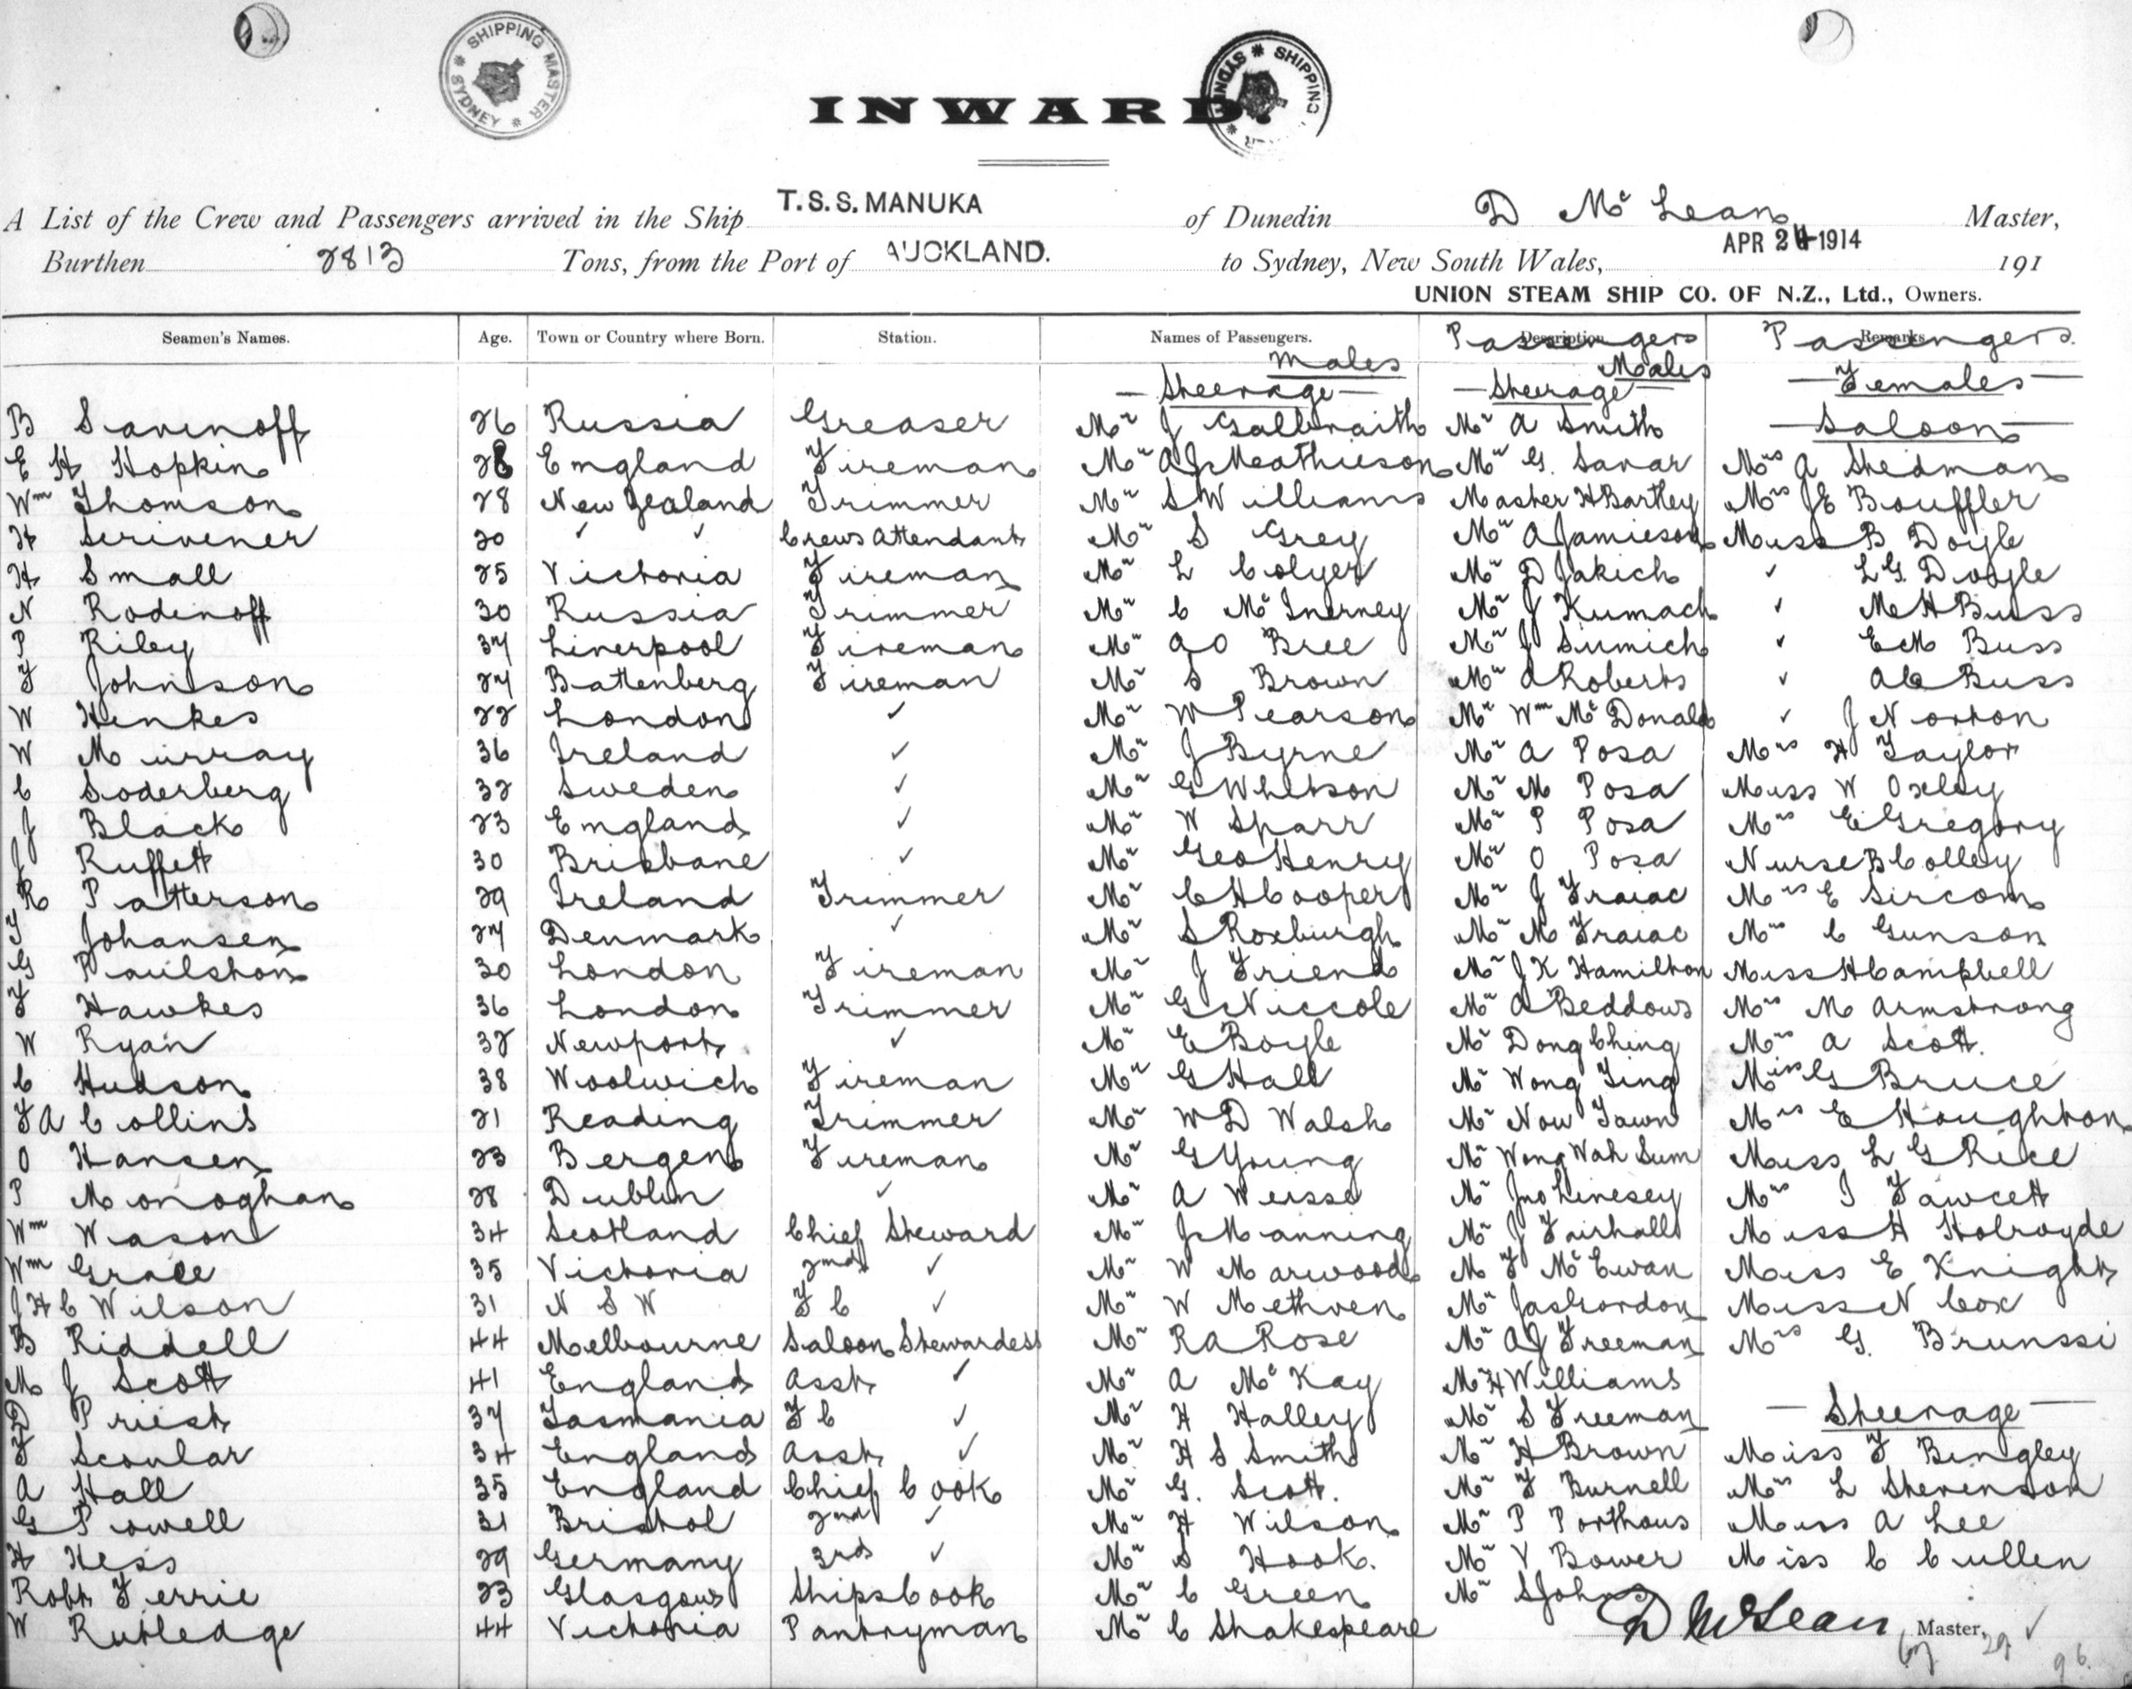 SHIPPING MASTER SYDNEY
SHIPPING SYDNEY
INWARD.
A List of the Crew and Passengers arrived in the Ship T.S.S. MANUKA of Dunedin D McLean Master,
Burthen 2813 Tons, from the Port of AUCKLAND. to Sydney, New South Wales, APR 24 1914 191
UNION STEAM SHIP CO. OF N.Z., Ltd., Owners.
Seamen's Names. Age. Town or Country where Born. Station. Names of Passengers. Description Passengers Remarks Passengers.
Males Males Females
Steerage Steerage Saloon
B Savinoff 26 Russia Greaser Mr J Galbraith Mr A Smith
E H Hopkin 28 England Fireman Mr A J Meathieson Mr G. Savar Mrs A Stedman
Wm Thomson 28 New Zealand Trimmer Mr S Williams Master H Bartley Mrs J E Bouffler
H Scrivener 20 ✓ ✓ Crews Attendant Mr S Grey Mr A Jamieson Miss B Doyle
H Small 25 Victoria Fireman Mr L Colyer Mr D Jakich ✓ L G Doyle
N Rodinoff 30 Russia Trimmer Mr C McInerney Mr J Kumach ✓ M H Buss
P Riley 37 Liverpool Fireman Mr A O Bree Mr J Sumich ✓ E M Buss
F Johnson 27 Battenberg Fireman Mr S Brown Mr A Roberts ✓ A C Buss
W Henkes 22 London ✓ Mr W Pearson Mr Wm McDonald ✓ J Norton
W Murray 36 Ireland ✓ Mr J Byrne Mr A Posa Mrs H Taylor
C Soderberg 32 Sweden ✓ Mr G Whitson Mr M Posa Miss W Oxley
J Black 23 England ✓ Mr W Sparr Mr P Posa Mrs E Gregory
J Ruffett 30 Brisbane ✓ Mr Geo Henry Mr O Posa Nurse B Colley
R Patterson 29 Ireland Trimmer Mr C H Cooper Mr J Fraiac Mrs E Sircom
T Johansen 27 Denmark ✓ Mr S Roxburgh Mr M Fraiac Mrs C Gunson
G Paulston 30 London Fireman Mr J Friend Mr J K Hamilton Miss H Campbell
F Hawkes 36 London Trimmer Mr G Niccole Mr A Beddows Mrs M Armstrong
W Ryan 32 Newport ✓ Mr E Boyle Mr Dong Ching Mrs A Scott.
C Hudson 38 Woolwich Fireman Mr G Hall Mr Wong Ting Miss G Bruce
F A Collins 21 Reading Trimmer Mr W D Walsh Mr Now Tawn Mrs E Houghton
O Hansen 23 Bergen Fireman Mr G Young Mr Wong Wah Sum Miss L G Rice
P Monoghan 28 Dublin ✓ Mr A Weisse Mr Jno Linesey Mrs I Fawcett
Wm Wason 34 Scotland Chief Steward Mr J Manning Mr J Fairhall Miss H Holroyde
Wm Grace 35 Victoria 2nd ✓ Mr W Marwood Mr F McEwan Miss E Knight
J H C Wilson 31 N S W F C ✓ Mr W Methven Mr Jas Gordon Miss N Cox
B Riddell 44 Melbourne Saloon Stewardess Mr R A Rose Mr A J Freeman Mrs G. Brunssi
M J Scott 41 England Asst ✓ Mr A McKay Mr H Williams
D Priest 37 Tasmania F C ✓ Mr H Halley Mr S Freeman Steerage
F Scoular 34 England Asst ✓ Mr H S Smith Mr H Brown Miss F Bingley
A Hall 35 England Chief Cook Mr G. Scott. Mr F Burnell Mrs L Stevenson
G Powell 31 Bristol 2nd ✓ Mr H Wilson Mr P Porthous Miss A Lee
H Hess 29 Germany 3rd ✓ Mr S Hook. Mr V Bower Miss C Cullen
Robt Ferrie 23 Glasgow Ships Cook Mr C Green Mr S Johns
W Rutledge 44 Victoria Pantryman Mr C Shakespeare D McLean Master,
67 29 ✓
96.